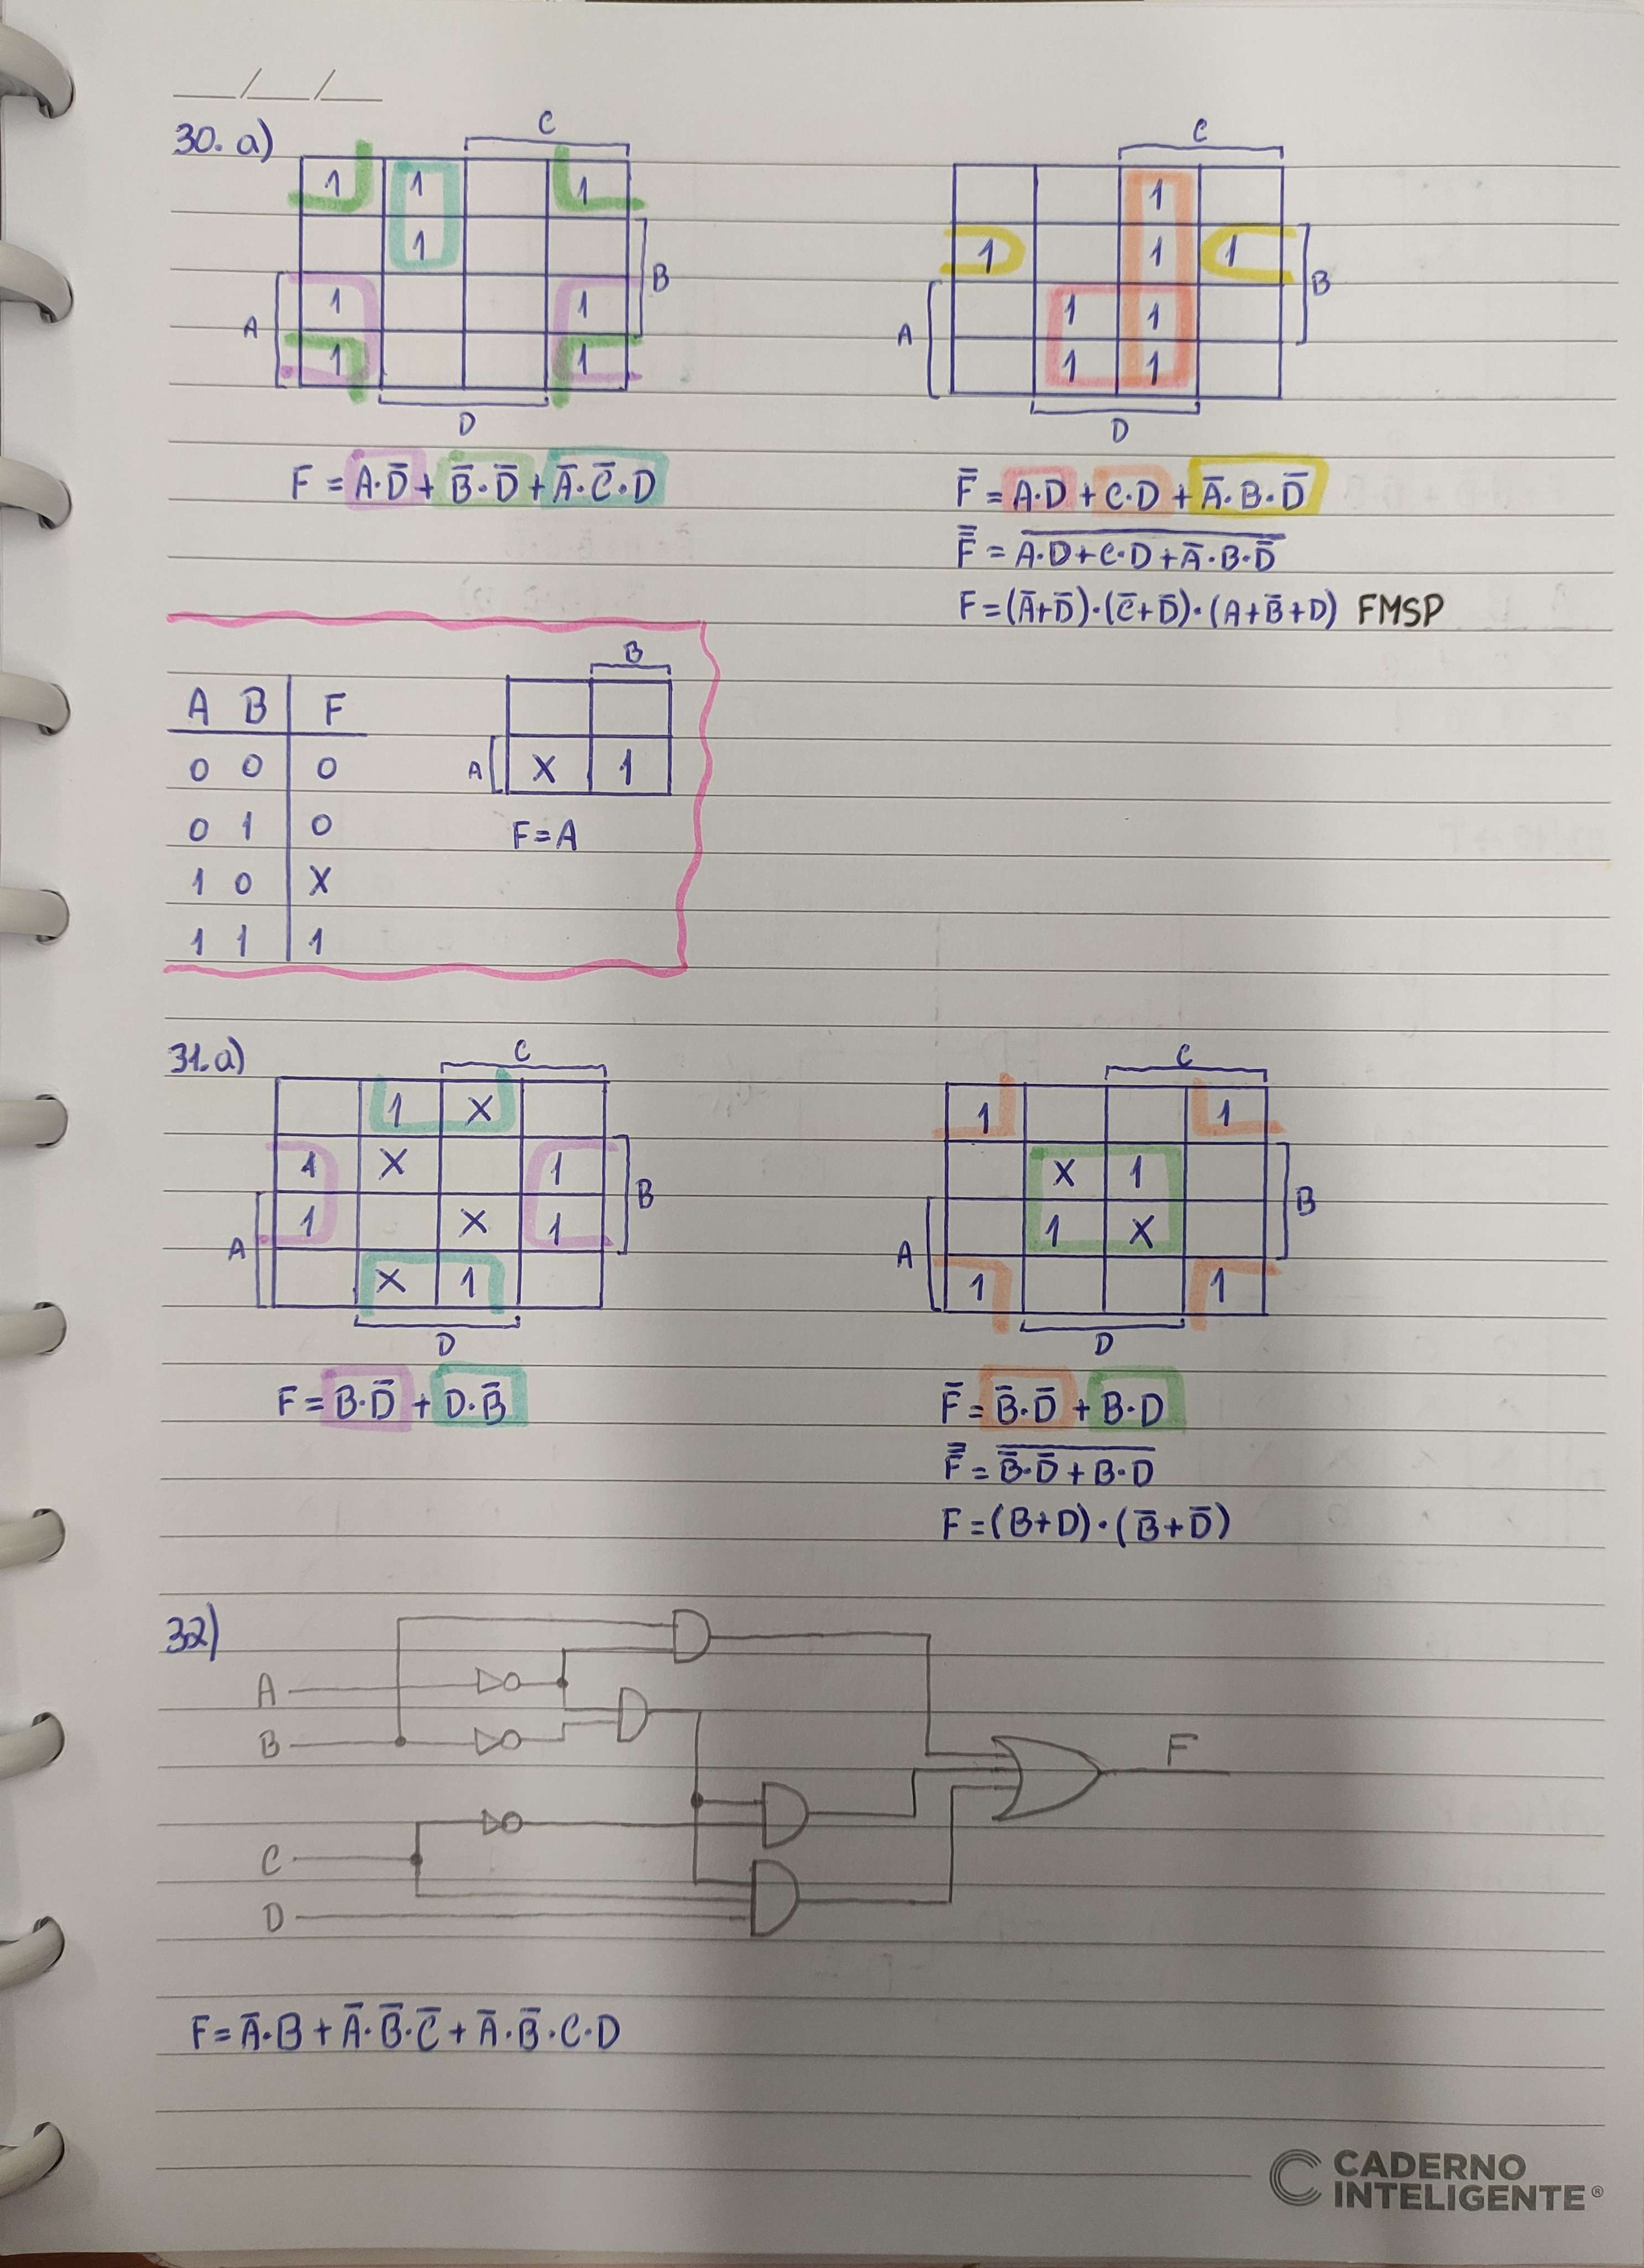 __/__/__
30. a)
C
1 1 1
1
B
1 1
A
1 1
D
F = A·D̄ + B̄·D̄ + Ā·C̄·D
C
1
1 1 1
B
1 1
A
1 1
D
F̄ = A·D + C·D + Ā·B·D̄
F̿ = \overline{A·D + C·D + Ā·B·D̄}
F = (Ā+D̄)·(C̄+D̄)·(A+B̄+D) FMSP
A B F
0 0 0
0 1 0
1 0 X
1 1 1
B
A X 1
F = A
31. a)
C
1 X
1 X 1
B
1 X 1
A
X 1
D
F = B·D̄ + D·B̄
C
1 1
X 1
B
1 X
A
1 1
D
F̄ = B̄·D̄ + B·D
F̿ = \overline{B̄·D̄ + B·D}
F = (B+D)·(B̄+D̄)
32)
A
B
F
C
D
F = Ā·B + Ā·B̄·C̄ + Ā·B̄·C·D
CADERNO
INTELIGENTE®